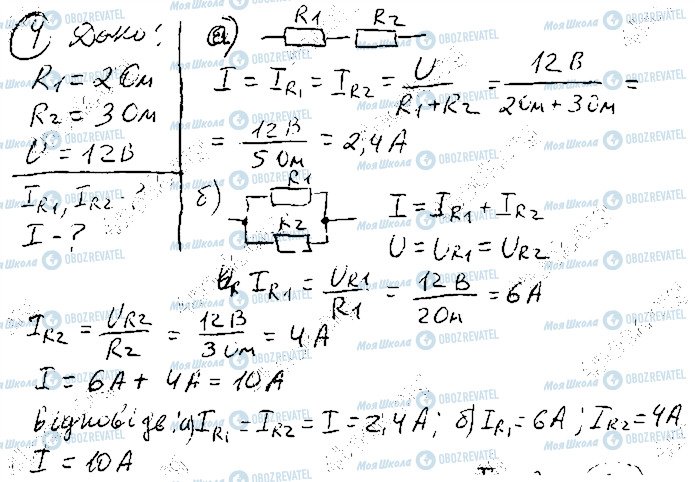 4 Дано:
R1 = 2 Ом
R2 = 3 Ом
U = 12 В
IR1, IR2 - ?
I - ?
а) R1 R2
I = IR1 = IR2 = U/(R1+R2) = 12 В/(2 Ом + 3 Ом) =
= 12 В/5 Ом = 2,4 А
б) R1 R2
I = IR1 + IR2
U = UR1 = UR2
IR1 = UR1/R1 = 12 В/2 Ом = 6 А
IR2 = UR2/R2 = 12 В/3 Ом = 4 А
I = 6 А + 4 А = 10 А
Відповідь: а) IR1 = IR2 = I = 2,4 А; б) IR1 = 6 А; IR2 = 4 А
I = 10 А
Моя Школа OBOZREVATEL